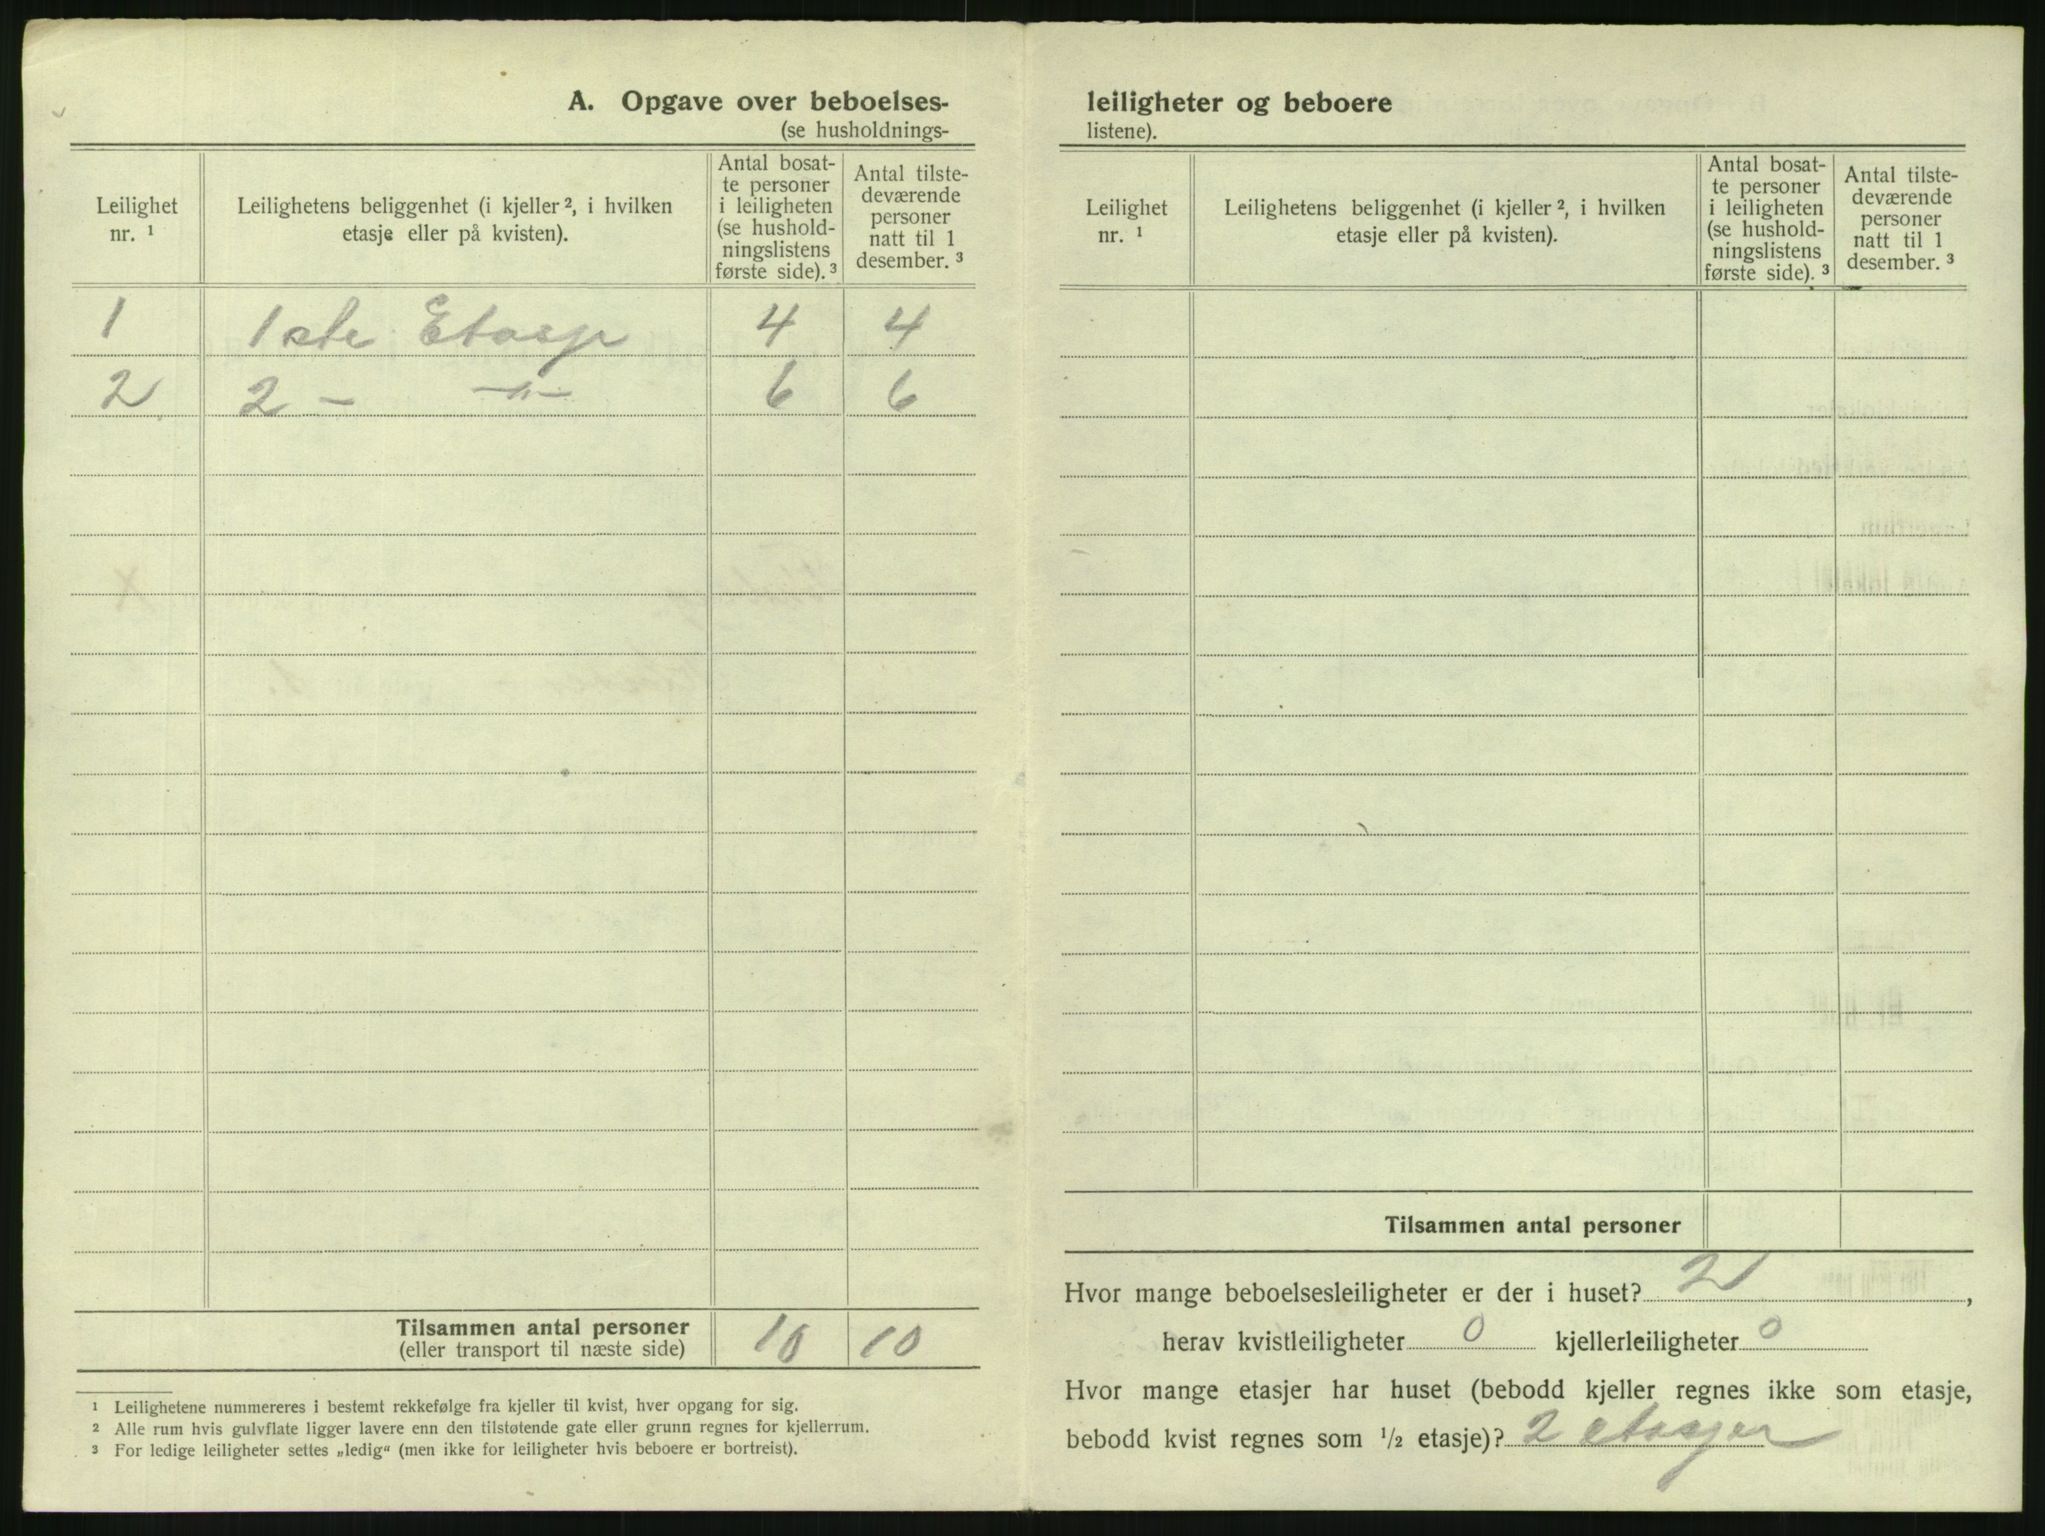 A. Opgave over beboelses-
(se husholdnings-
Leilighet
nr. ¹
Leilighetens beliggenhet (i kjeller ², i hvilken
etasje eller på kvisten).
Antal bosat-
te personer
i leiligheten
(se hushold-
ningslistens
første side). ³
Antal tilste-
deværende
personer
natt til 1
desember. ³
1 1ste Etasje 4 4
2 2 - -"- 6 6
Tilsammen antal personer 10 10
(eller transport til næste side)
¹ Leilighetene nummereres i bestemt rekkefølge fra kjeller til kvist, hver opgang for sig.
² Alle rum hvis gulvflate ligger lavere enn den tilstøtende gate eller grunn regnes for kjellerrum.
³ For ledige leiligheter settes „ledig“ (men ikke for leiligheter hvis beboere er bortreist).
leiligheter og beboere
listene).
Leilighet
nr. ¹
Leilighetens beliggenhet (i kjeller ², i hvilken
etasje eller på kvisten).
Antal bosat-
te personer
i leiligheten
(se hushold-
ningslistens
første side). ³
Antal tilste-
deværende
personer
natt til 1
desember. ³
Tilsammen antal personer
Hvor mange beboelsesleiligheter er der i huset? 2,
herav kvistleiligheter 0 kjellerleiligheter 0
Hvor mange etasjer har huset (bebodd kjeller regnes ikke som etasje,
bebodd kvist regnes som ½ etasje)? 2 etasjer